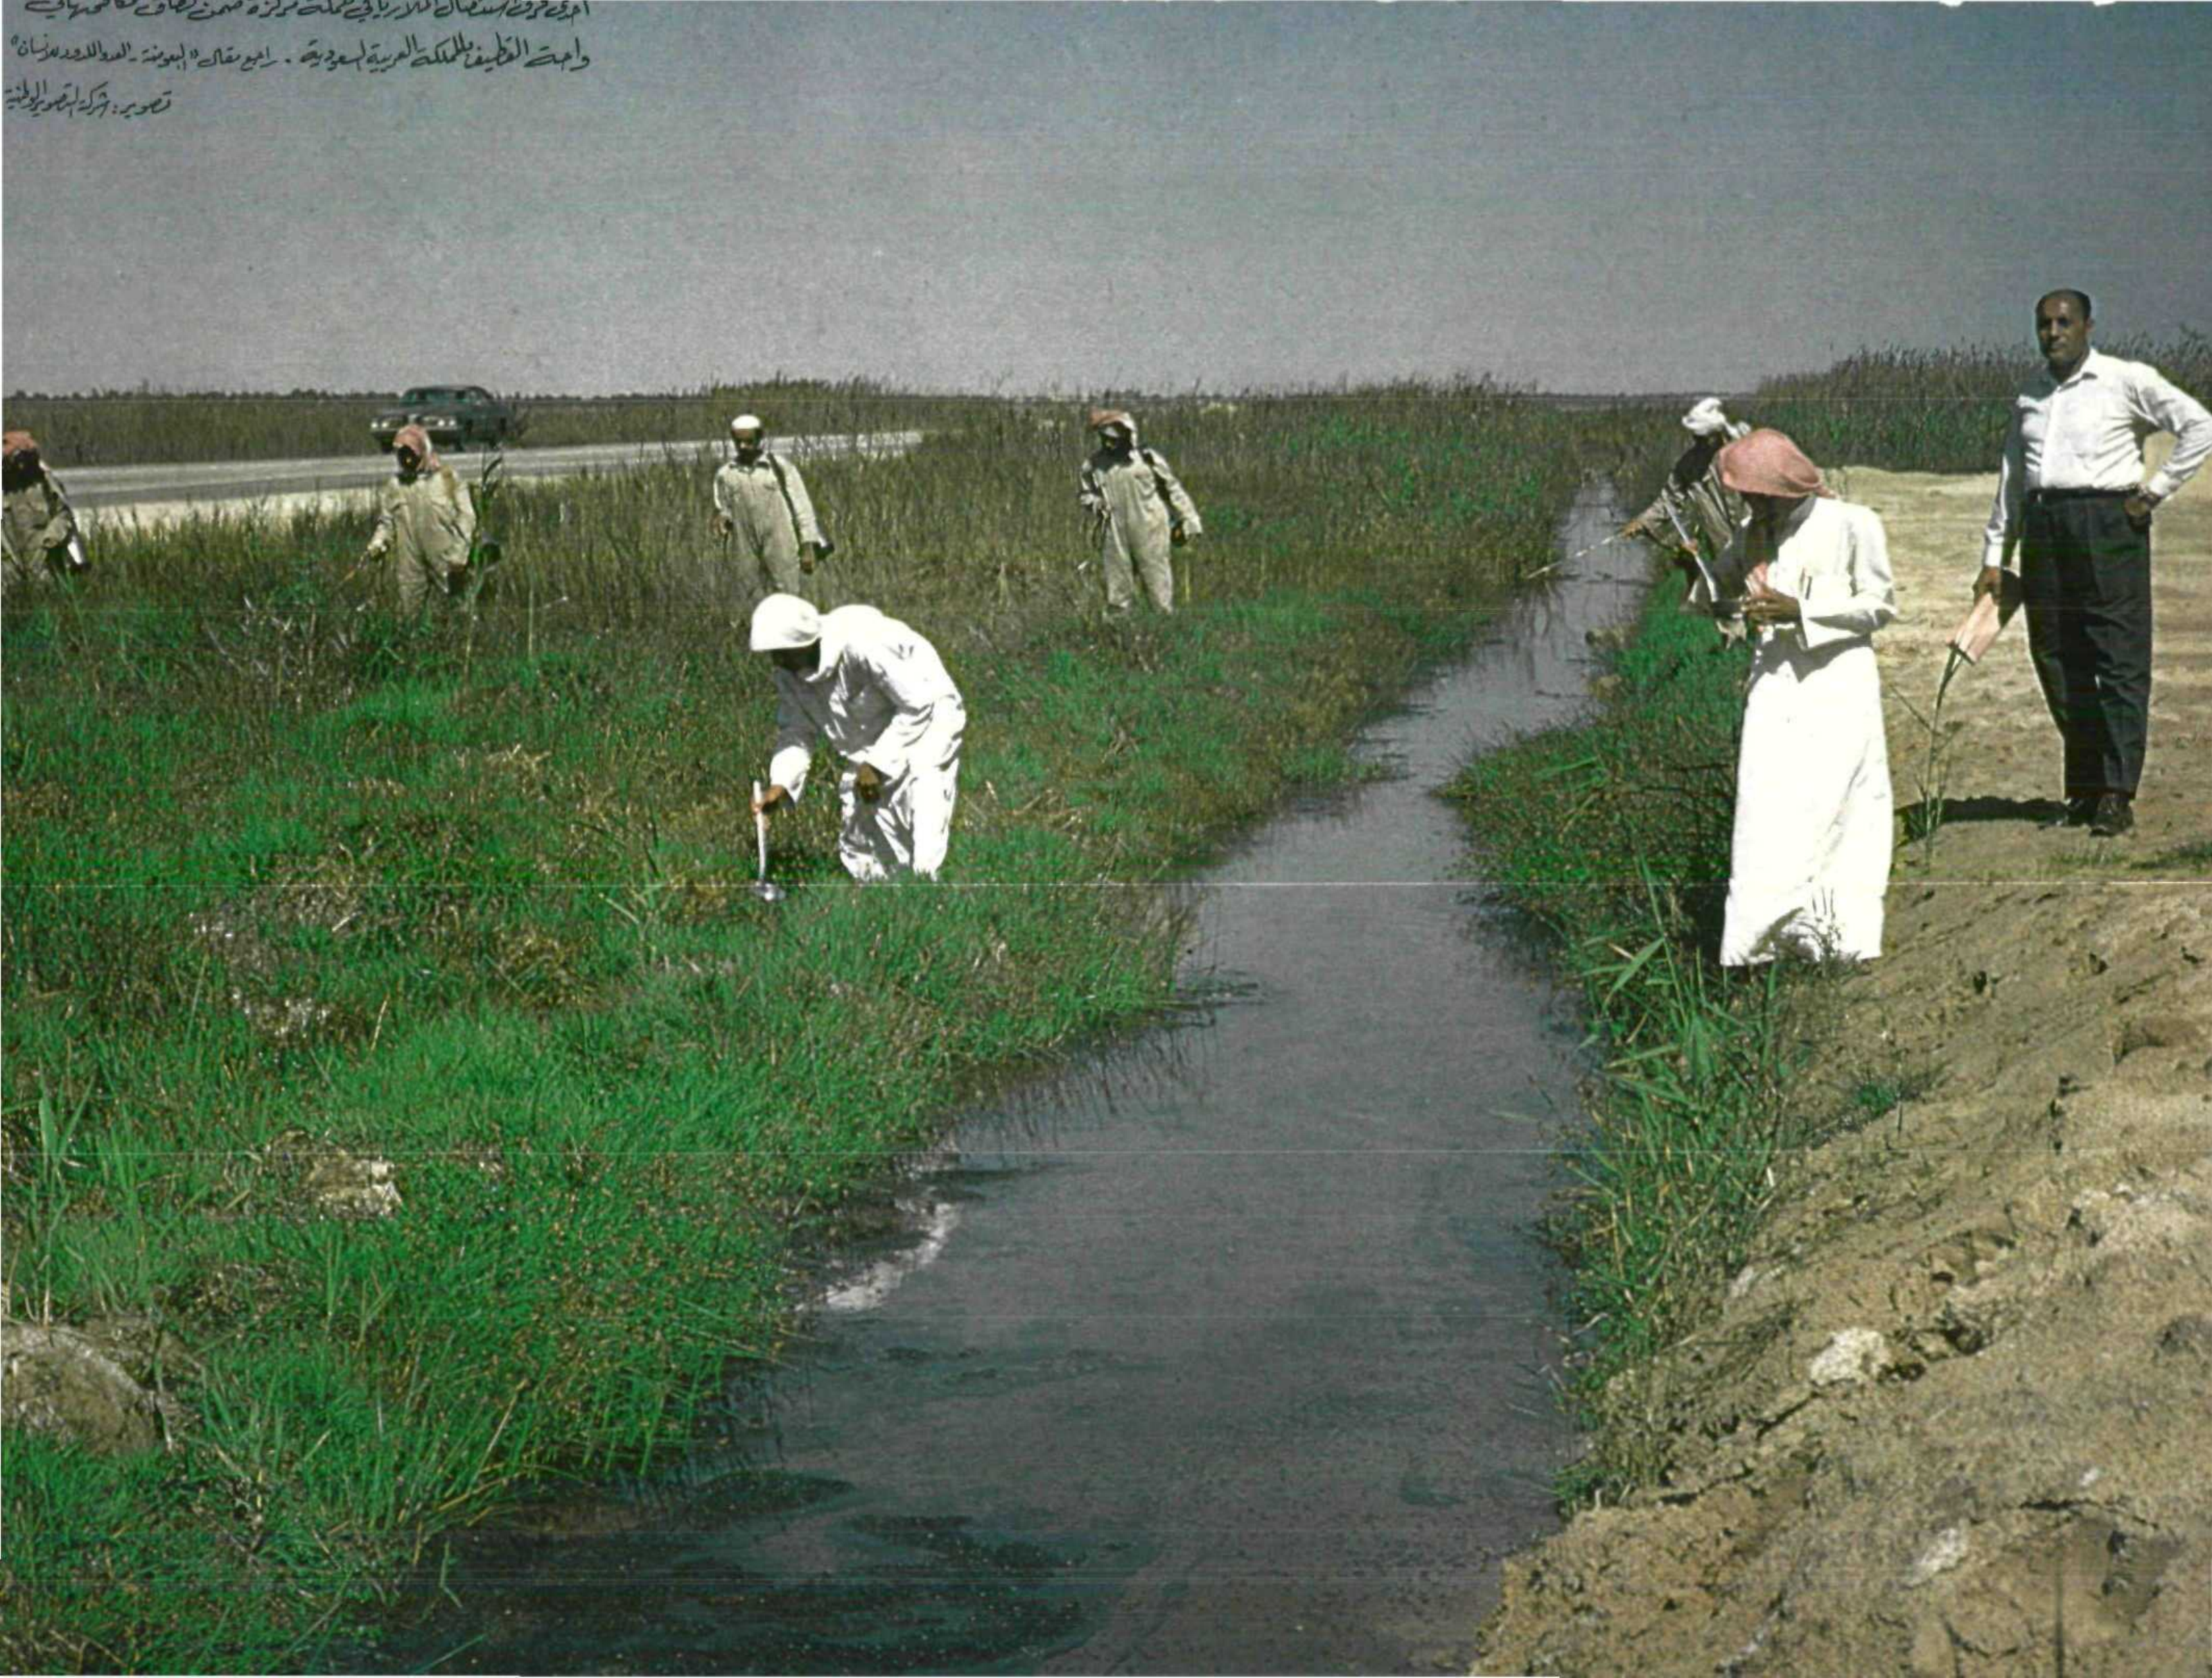 احدى فرق استئصال الملاريا في حملة مركزة ضمن نطاق مكافحتها في
واحة القطيف بالمملكة العربية السعودية . راجع مقال "البعوضة - العدو اللدود للإنسان"
تصوير : شركة التصوير الوطنية